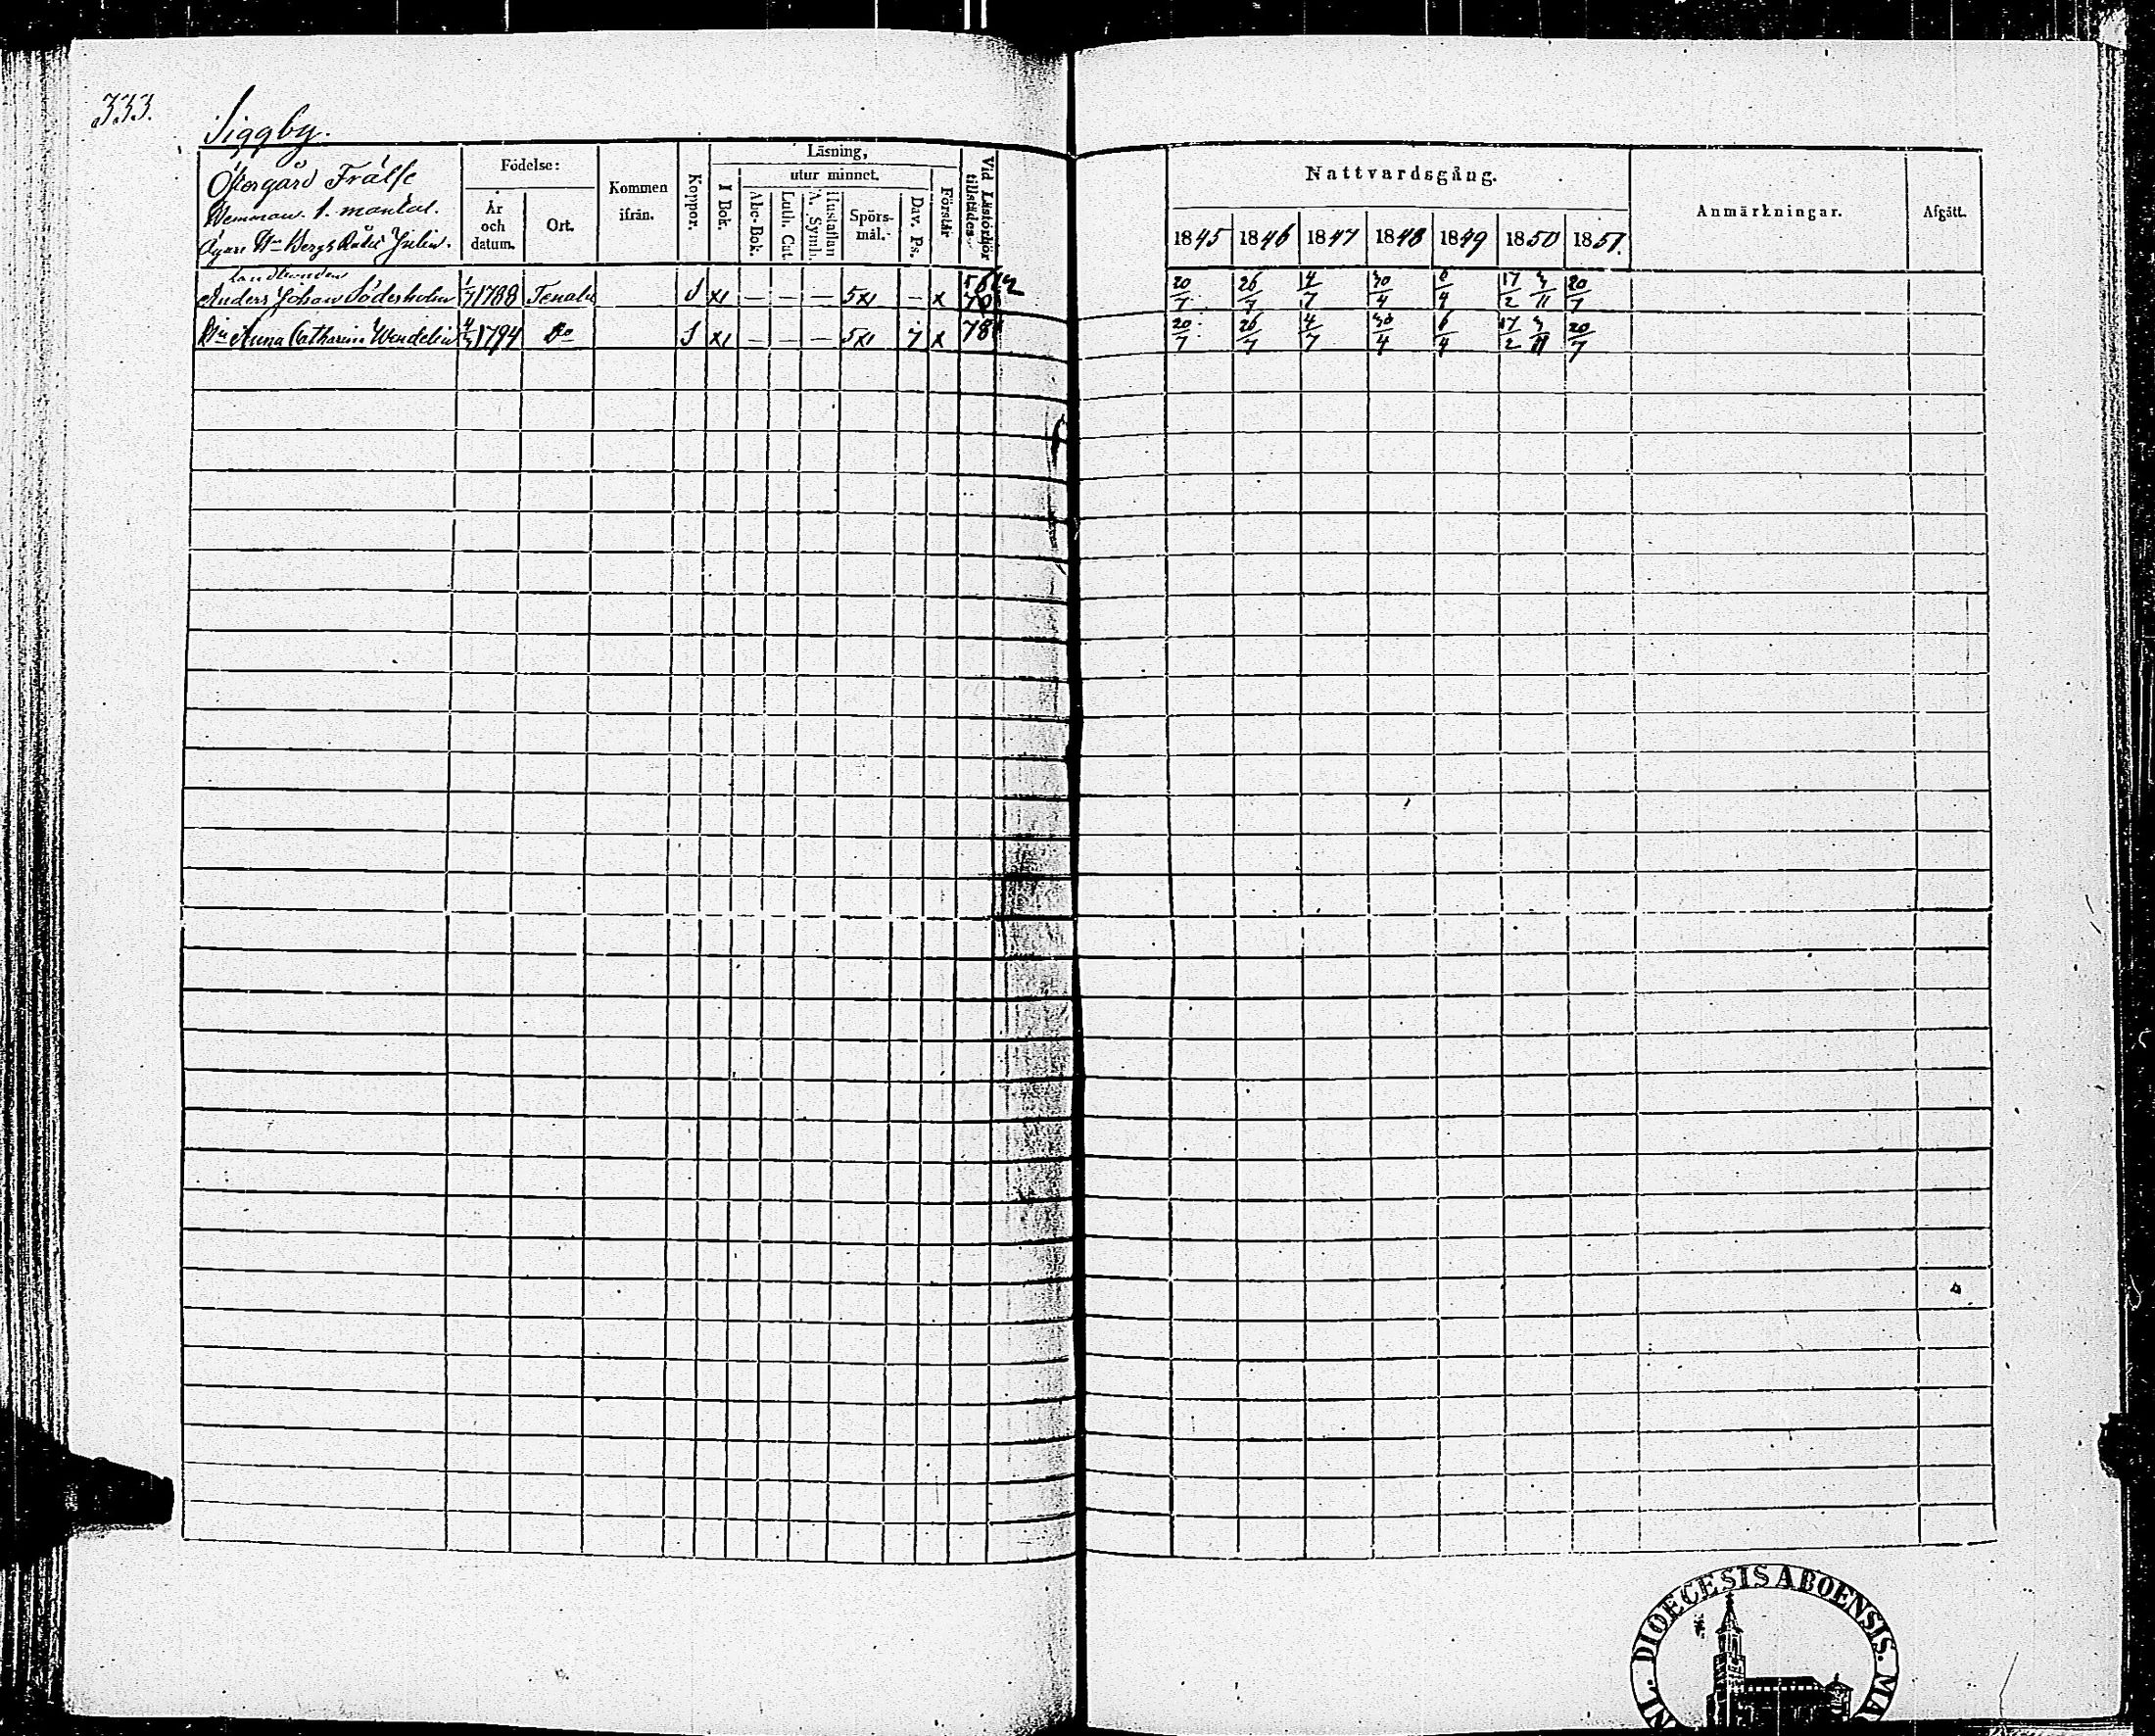 333.
Siggby.
Östergård Frälse
Hemman. 1. mantal.
Ägare Hr Bergs Rådet Julin.
Födelse:
År och datum.
Ort.
Kommen ifrån.
Koppor.
Läsning,
I Bok.
utur minnet.
Abc-Bok.
Luth. Cat.
Hustaflan A. Symb.
Spörs-mål.
Dav. Ps.
Förstår
Vid Läsförhör tillstädes.
Nattvardsgång.
1845 1846 1847 1848 1849 1850 1851.
Anmärkningar.
Afgått.
Landbonden
Anders Johan Söderholm 1/7 1788 Tenala S x — — — 5x — x 20/7 26/7 4/7 30/4 6/4 17/2 3/11 20/7
Hu Anna Catharina Wendelin 1794 Do S x — — — 5x 7 x 78 20/7 26/7 4/7 30/4 6/4 17/2 3/11 20/7
DIOECESIS ABOENSIS.